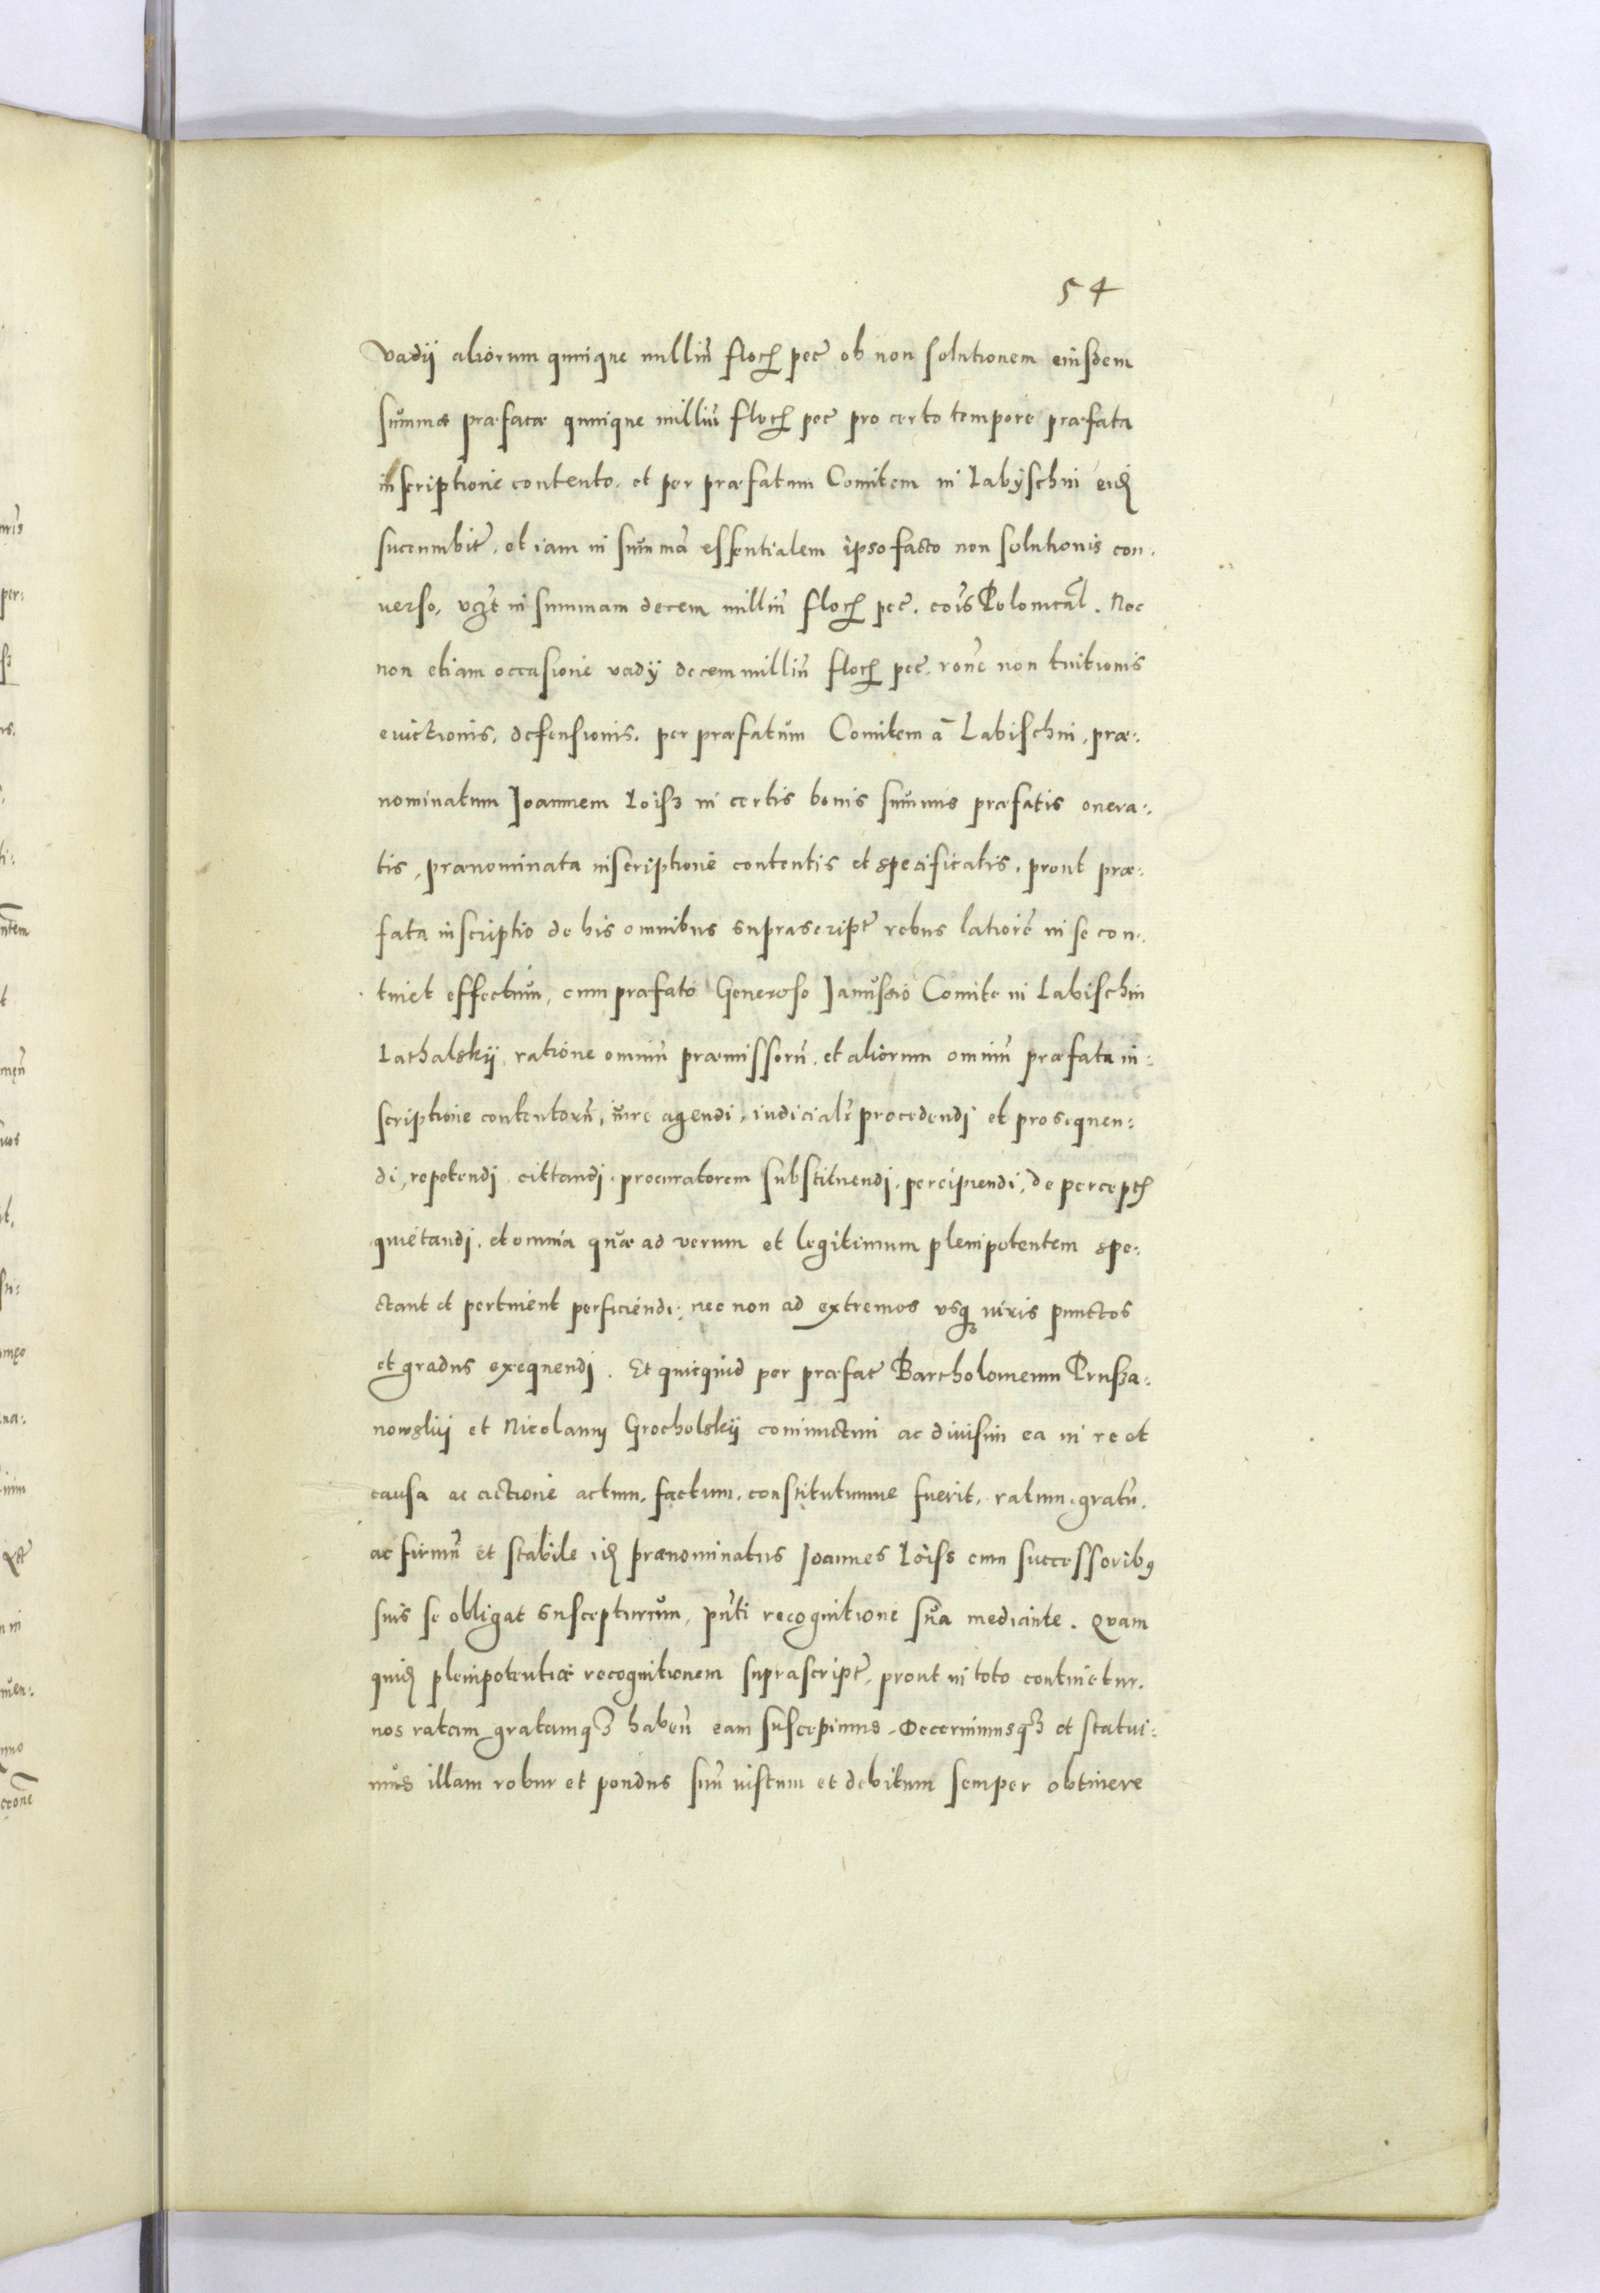 54
vadij aliorum quinque milliũ floꝝ pecˀ ob non solutionem eiusdem
summæ præfatæ quinque milliũ floꝝ pecˀ pro certo tempore præfata
inscriptione contento, et per præfatum Comitem in Labyschin eidꝫ
succumbitˀ, et iam in summã essentialem ipso facto non solutionis con-
verso, vigrˀ in summam decem milliũ floꝝ pecˀ. cõis Poloniacãl. Nec
non etiam occasione vadij decem milliũ floꝝ pecˀ. rõne non tuitionis
euictionis, defensionis, per præfatum Comitem à Labischin, præ-
nominatum Joannem Loisz in certis bonis summis præfatis onera-
tis, prænominata inscriptione contentis et specificatis, prout præ-
fata inscriptio de his omnibus suprascriptˀ rebus latiorẽ in se con-
tinet effectum, cum præfato Generoso Janussio Comite in Labischin
Lathalskij, ratione omniũ præmissorũ, et aliorum omniũ præfata in-
scriptione contentorũ, iure agendi, iudicialr̃ procedendj et prosequen-
di, repetendj, cittandj, procuratorem substituendj, percipiendi, de perceptꝭ
quietandj, et omnia quæ ad verum et legitimum plenipotentem spe-
ctant et pertinent perficiendi, nec non ad extremos vsqꝫ iuris punctos
et gradus exequendj. Et quicquid per præfatˀ Bartholomeum Prusza-
nowskij et Nicolaum Grocholskij coniunctim ac diuisim ea in re et
causa ac actione actum, factum, constitutumue fuerit, ratum, gratũ,
ac firmũ et stabile idꝫ prænominatus Joannes Loiss cum successoribꝰ
suis se obligat suscepturum, pñti recognitione sua mediante. Quam
quidꝫ plenipotentiæ recognitionem suprascriptˀ, prout in toto continetur,
nos ratam gratamqꝫ habeñ eam suscepimus, Decernimusqꝫ et statui-
mus illam robur et pondus suũ iustum et debitum semper obtinere